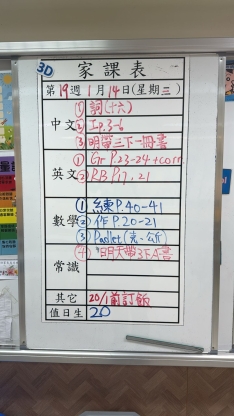 3D
家課表
第19週1月14日(星期三)
中文
① 詞(十六)
② Ip.3-6
③ 明帶三下一冊書
英文
① Gr P.23-24+corr
② RB P.17, 21
數學
① 練P.40-41
② 作P.20-21
③ Padlet
④ 明天帶3下A書
常識
其它
20/1前訂飯
值日生
20